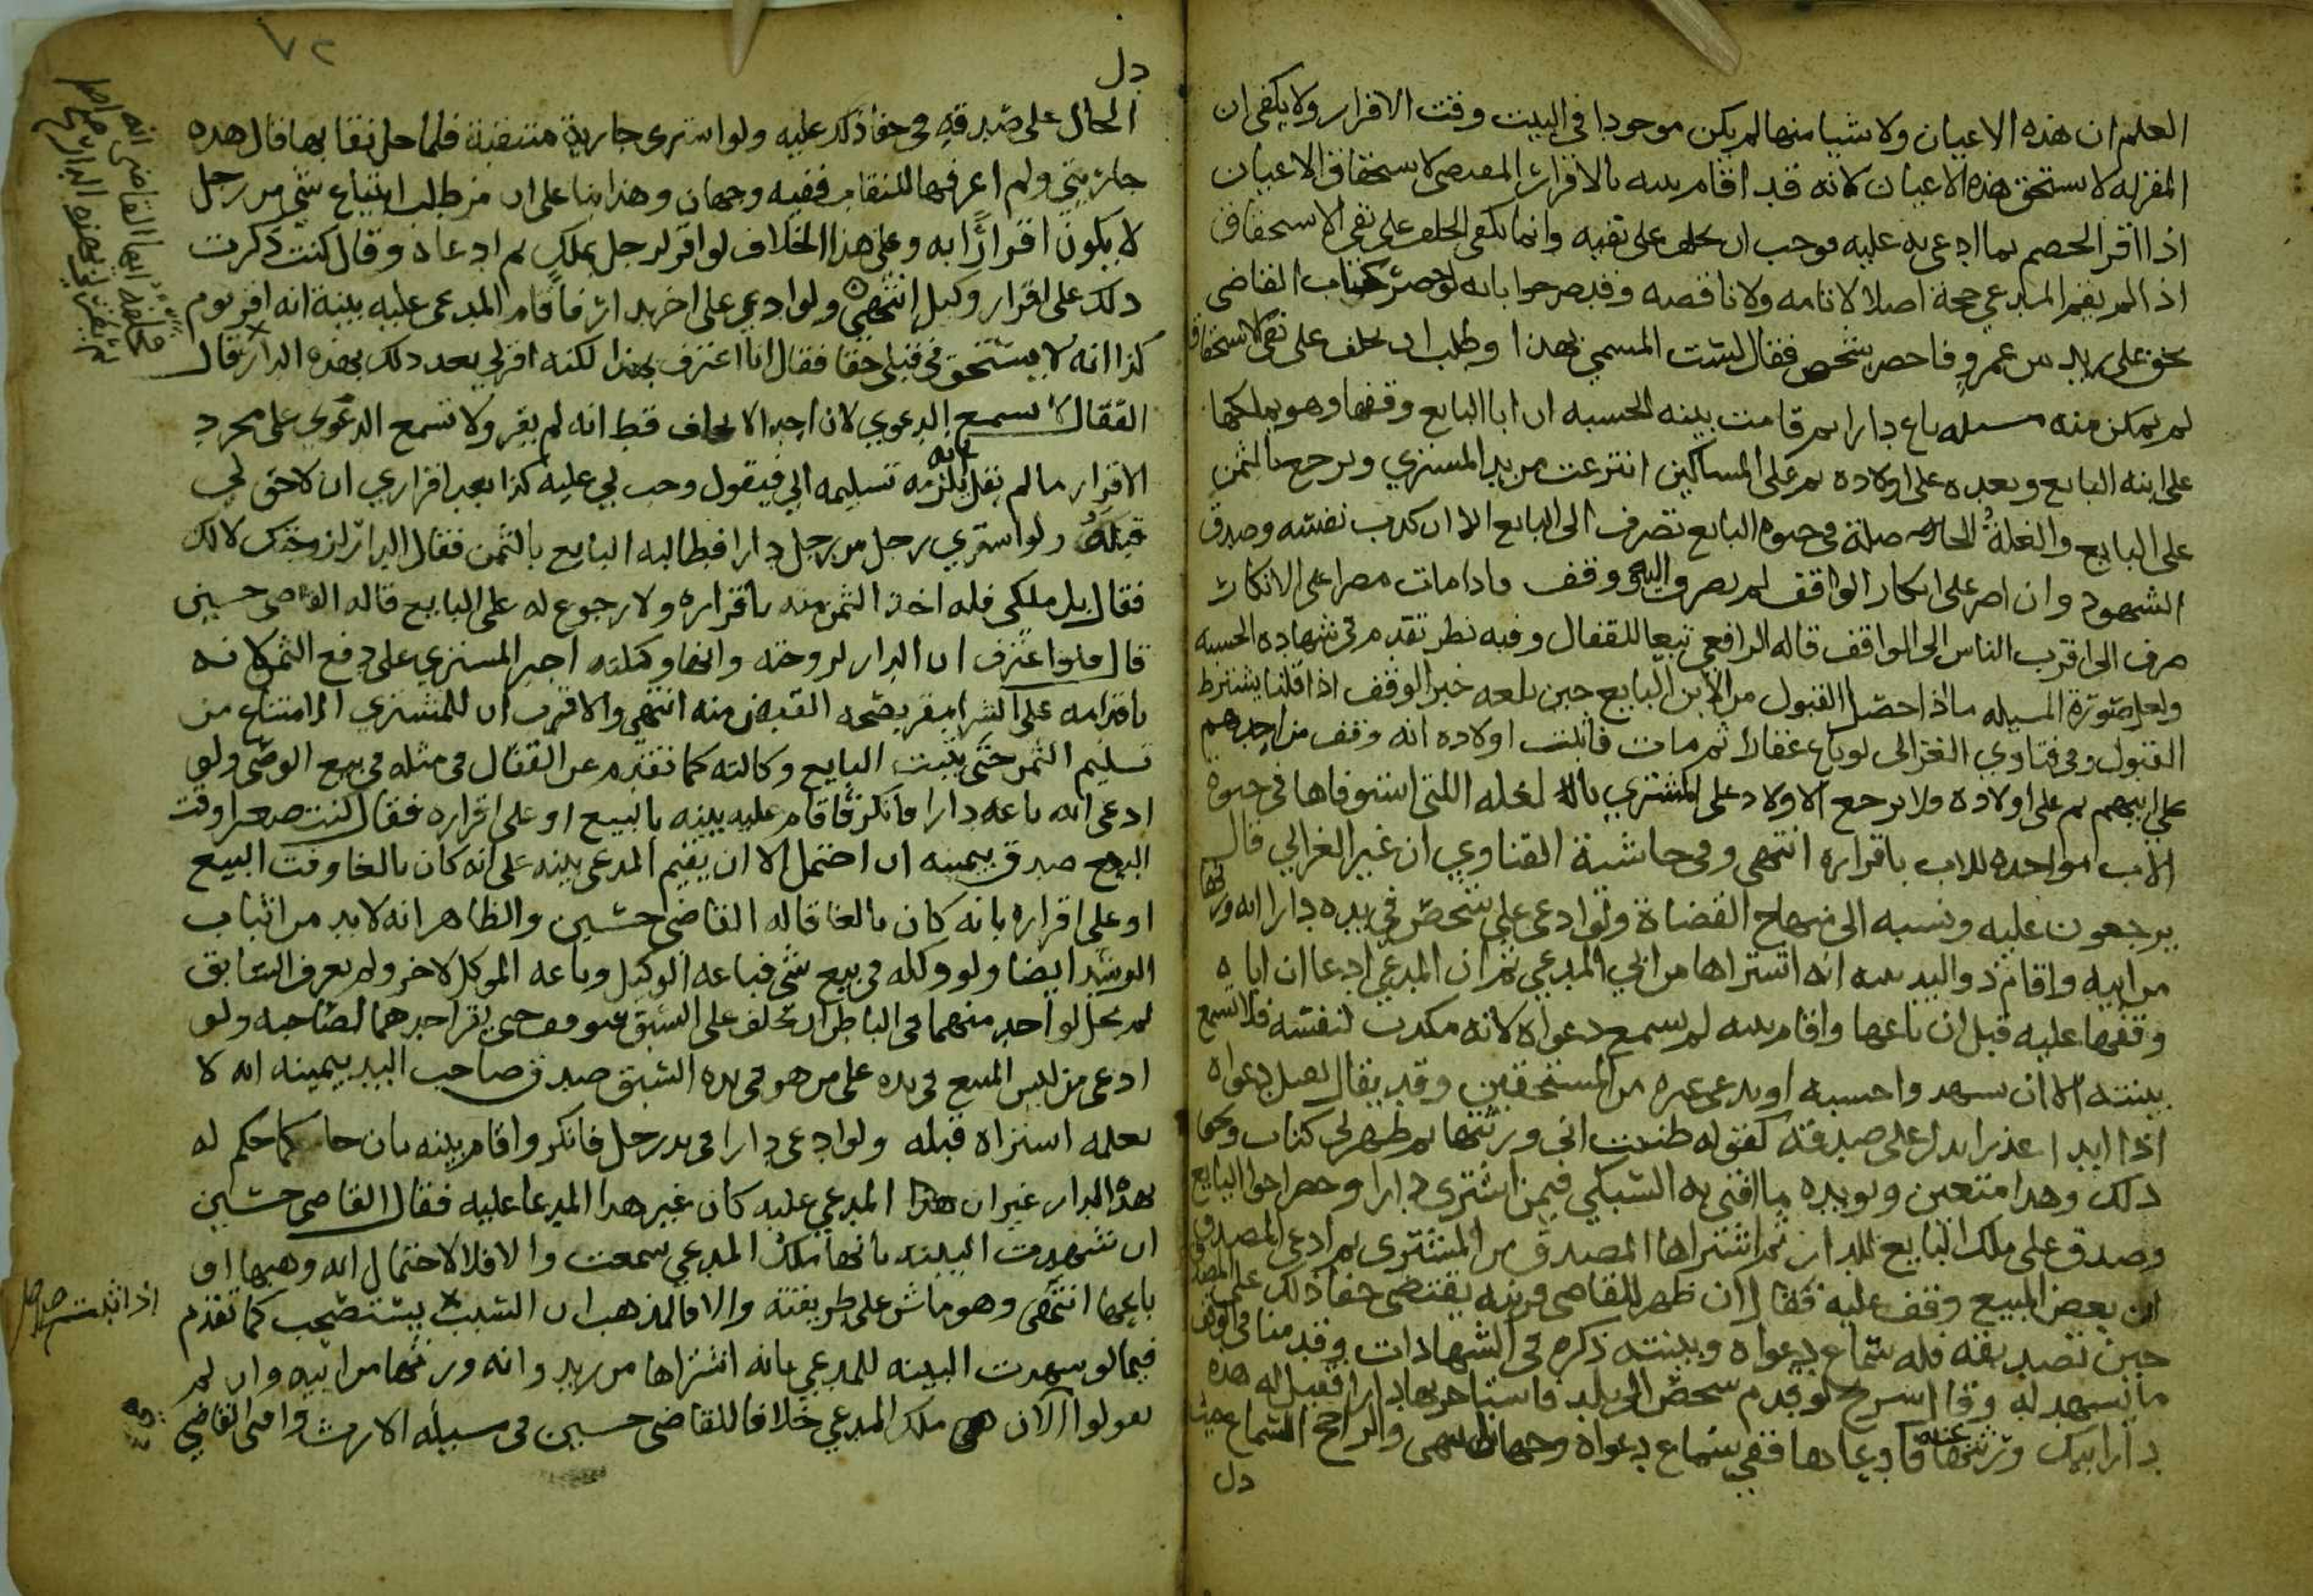 العلم ان هذه الاعيان ولا شيا منها لم يكن موجودا في البيت وقت الاقرار ولا يكفي ان
المقر له لا يستحق هذه الاعيان لانه قد اقام بينه بالاقرار المقتضي لاستحقاق الاعيان
اذا اقر الخصم بما ادعي به عليه فوجب ان يحلف على نفيه وانما يكفي الحلف على نفي الاستحقاق
اذا لم يقم المدعي حجة اصلا لا تامه ولا ناقصه وقد صرحوا بانه لو حضر كتاب القاضي
بحق على زيد بن عمرو فاحضر شخص فقال لست المسمي بهذا وطلب ان يحلف على نفي الاستحقاق
لم يمكن منه مسله باع دارا ثم قامت بينه الحسبه ان ابا البايع وقفها وهو يملكها
على ابنه البايع وبعده على اولاده ثم على المساكين انتزعت من يد المشتري ويرجع بالثمن
على البايع والغلة الحاصله في حيوة البايع تصرف الى البايع الا ان كذب نفسه وصدق
الشهود وان اصر على انكار الواقف لم يصرف اليه ووقف فاذا مات مصرا على الانكار
صرف الى اقرب الناس الى الواقف قاله الرافعي تبعا للقفال وفيه نظر تقدم في شهاده الحسبه
ولعل صورة المسيله ما اذا حصل القبول من الابن البايع حين بلغه خبر الوقف اذا قلنا يشترط
القبول وفي فتاوي الغزالى لو باع عقارا ثم مات فاثبت اولاده انه وقف من جدهم
على ابيهم ثم على اولاده ولا يرجع الاولاد على المشتري بالغله اللتي استوفاها في حيوة
الاب مواحده للاب باقراره انتهى وفي حاشية الفتاوي ان غير الغزالي قال
يرجعون عليه ونسبه الى منهاج القضاة ولو ادعى على شخص في يده دارا انه ورثها
من ابيه واقام ذو اليد بينه انه اشتراها من ابي المدعي ثم ان المدعي ادعا ان اباه
وقفها عليه قبل ان باعها واقام بينه لم تسمع دعواه لانه مكذب لنفسه فلا تسمع
بينته الا ان تشهد واحسبه او يدعي غيره من المستحقين وقد يقال تقبل دعواه
اذا ابدا عذرا يدل على صدقه كقوله ظننت اني ورثتها ثم ظهر لي كتاب ونحو
ذلك وهذا متعين ويويده ما افتى به السبكي فيمن اشترى دارا وحضر اخو البايع
وصدق على ملك البايع للدار ثم اشتراها المصدق من المشتري ثم ادعى المصدق
ان بعض المبيع وقف عليه فقال ان ظهر للقاضي قرينه يقتضي خفا ذلك على المصدق
حين تصديقه فله سماع دعواه وبينته ذكره في الشهادات وقدمنا في الوقف
ما يشهد له وقال شريح لو قدم شخص الى بلد فاستاجر بها دارا فقيل له هذه
دار ابيك ورثتها عنه فادعاها ففي سماع دعواه وجهان انتهى والراجح السماع حيث
دل
دل
الحال على صدقه في خفا ذلك عليه ولو اشترى جارية منتقبة فلما حل نقابها قال هذه
جاريتي ولم اعرفها للنقاب ففيه وجهان وهذا بنا على ان من طلب ابتياع شي من رجل
لا يكون اقرارًا به وعلى هذا الخلاف لو اقر لرجل بملك ثم ادعاه وقال كنت ذكرت
ذلك على اقرار وكيل انتهى ولو ادعي على اخر بدار فاقام المدعى عليه بينة انه اقر يوم
كذا انه لا يستحق في قبلي حقا فقال انا اعترف بهذا لكنه اقر لي بعد ذلك بهذه الدار قال
القفال لا تسمع الدعوي لان احدا لا يحلف قط انه لم يقر ولا تسمع الدعوى على مجرد
الاقرار ما لم يقل يلزمه تسليمه الي فيقول وجب لي عليه كذا بعد اقراري ان لا حق لي
قبله ولو اشتري رجل من رجل دارا فطالبه البايع بالثمن فقال الدار لزوجتك لا لك
فقال بل ملكي فله اخذ الثمن منه باقراره ولا رجوع له على البايع قاله القاضي حسين
قال فلو اعترف ان الدار لزوجته وانها وكلته اجبر المشتري على دفع الثمن لانه
باقدامه على الشرا مقر بصحه القبض منه انتهى والاقرب ان للمشتري الامتناع من
تسليم الثمن حتى يثبت البايع وكالته كما تقدم عن القفال في مثله في بيع الوصي ولو
ادعى انه باعه دارا فانكر فاقام عليه بينه بالبيع او على اقراره فقال كنت صغيرا وقت
البيع صدق بيمينه ان احتمل الا ان يقيم المدعى بينه على انه كان بالغا وقت البيع
او على اقراره بانه كان بالغا قاله القاضي حسين والظاهر انه لا بد من اثبات
الرشد ايضا ولو وكله في بيع شي فباعه الوكيل وباعه الموكل لاخر ولم يعرف السابق
لم يحل لواحد منهما في الباطن ان يحلف على السبق فيوقف حتى يقر احدهما لصاحبه ولو
ادعى من ليس المبيع في يده على من هو في يده السبق صدق صاحب اليد بيمينه انه لا
يعلمه اشتراه قبله ولو ادعى دارا في يد رجل فانكر واقام بينه بان حاكما حكم له
بهذه الدار غير ان هذا المدعي عليه كان غير هذا المدعا عليه فقال القاضي حسين
ان شهدت البينه بانها ملك المدعي سمعت والا فلا لاحتمال انه وهبها او
باعها انتهى وهو ماش على طريقته والا فالمذهب ان السبب يستصحب كما تقدم
فيما لو شهدت البينه للمدعي بانه اشتراها من زيد وانه ورثها من ابيه وان لم
يقولوا الان هي ملك المدعي خلافا للقاضي حسين في مسيله الارث وافتى القاضي